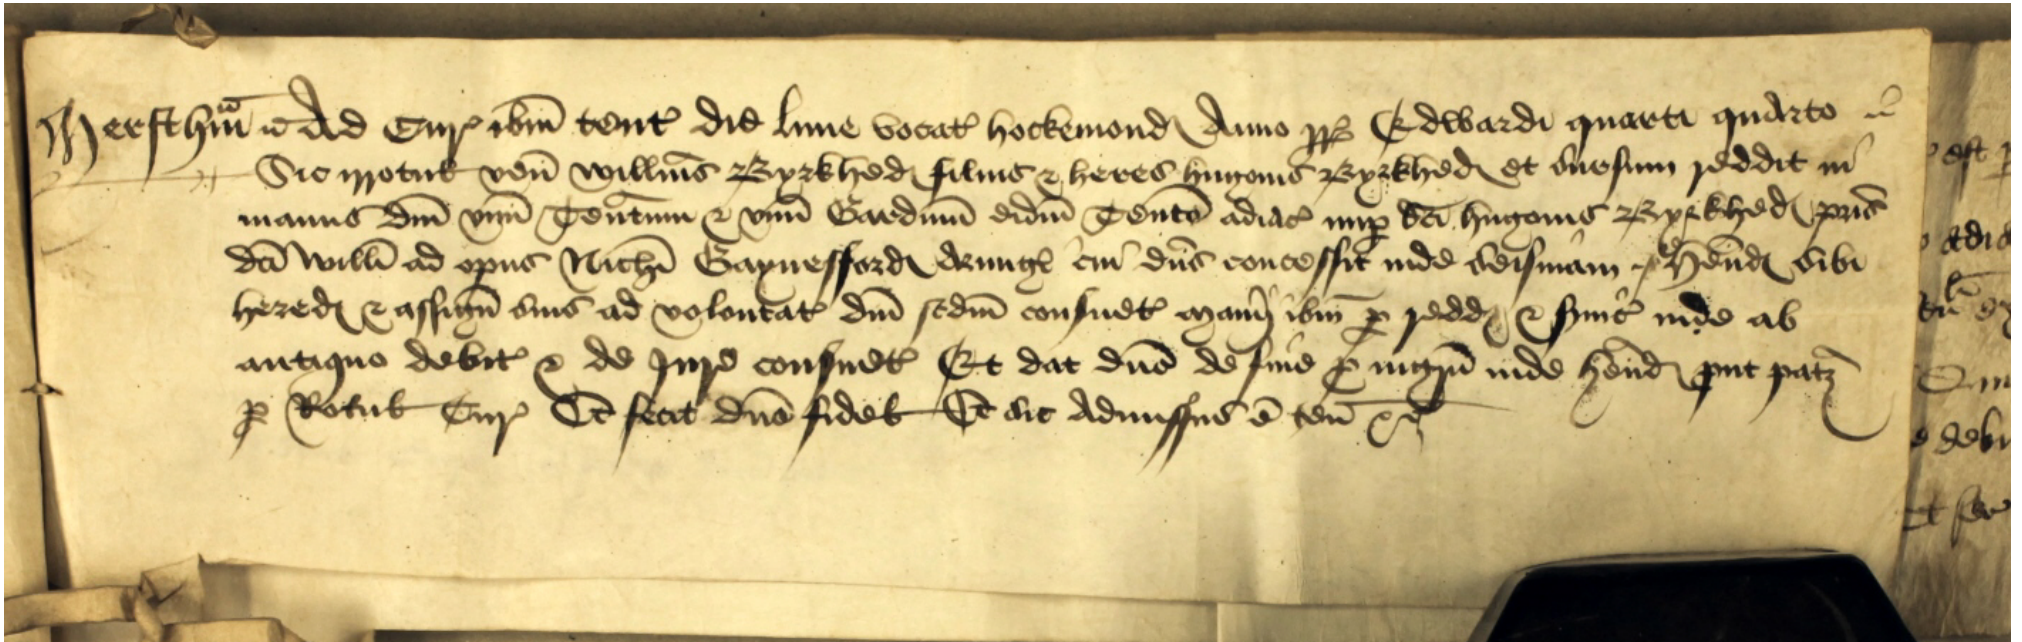 Mersthm̄ ss Ad Cur̛ ibm̄ tent̛ die lune vocat̛ hockemond̛ Anno rr̛ Edwardi quarti quarto
Sic irrotul̛ ven̄ Willm̄s Byrkhed̛ filius & heres hugonis Byrkhed̛ et sursum reddit in
manus dm̄ vnū Ten̄tum & vnū Gardinū eidm̄ Ten̄to adiac̛ nup̱ dc̄i hugonis Byrkhed̛ pris̄
dc̄i Willī ad opus Nichī Gaynesfford̛ Armig̛ cui dn̄s concessit inde seisinam Hēnd̛ sibi
hered̛ & assign̄ suis ad voluntat̛ dm̄ scdm̄ consuet̛ Manij̄ ibm̄ p̱ redd̛ & s̛uic̛ inde ab
antiquo debit̛ & de Iure consuet̛ Et dat dn̄o de fine p̱ ingr̄u inde hēnd̛ put pat̛
p̱ Rotul̛ Cur̛ Et fecit dn̄o fidel̛ Et sic Admissus ē ten̄